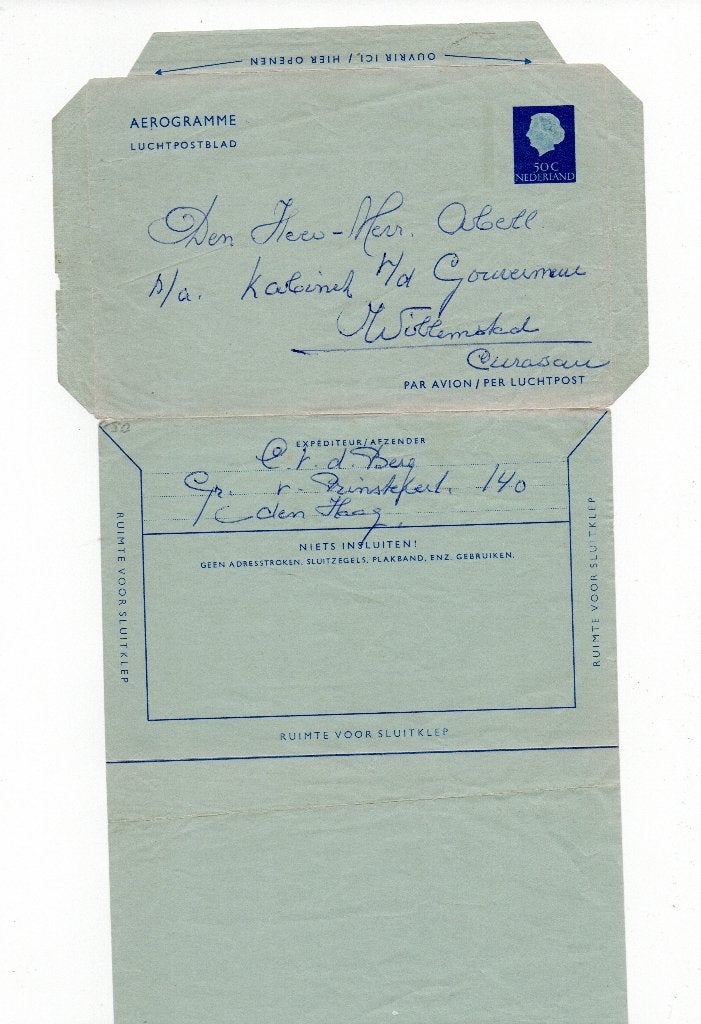 OUVRIR ICI / HIER OPENEN
AEROGRAMME
LUCHTPOSTBLAD
50 C
NEDERLAND
Den Heer-Mevr. Abell
p/a. Kabinet v/d Gouverneur
Willemstad
Curasau
PAR AVION / PER LUCHTPOST
50
EXPÉDITEUR/AFZENDER
C. v. d. Berg
Gr. v. 140
den Haag
NIETS INSLUITEN!
GEEN ADRESSTROKEN, SLUITZEGELS, PLAKBAND, ENZ. GEBRUIKEN.
RUIMTE VOOR SLUITKLEP
RUIMTE VOOR SLUITKLEP
RUIMTE VOOR SLUITKLEP